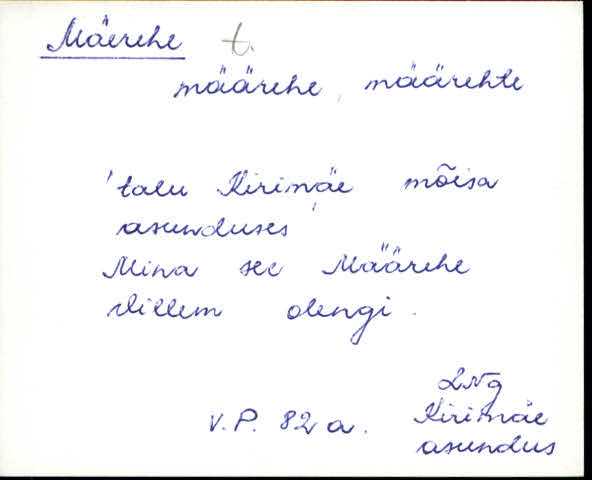 Mäerehe t.
määrehe, määrehte
'talu Kirimäe mõisa
asunduses'
Mina see Määrehe
Villem olengi.
LNg
V.P. 82 a. Kirimäe
asundus